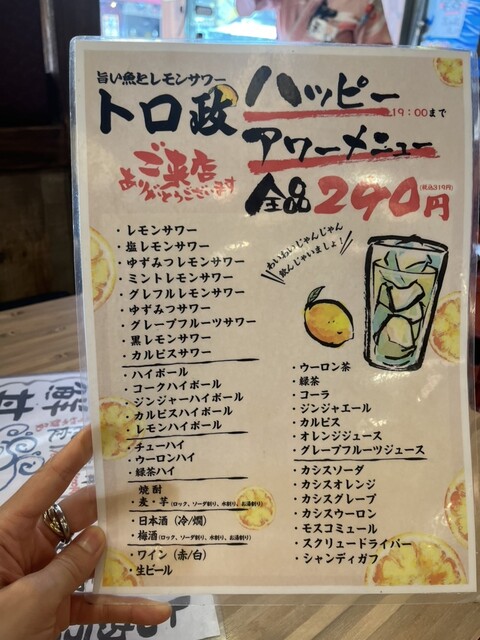 旨い魚とレモンサワー
トロ政
ハッピー
19:00まで
アワーメニュー
ご来店
ありがとうございます
全品290円
(税込319円)
わいわいじゃんじゃん
飲んじゃいましょ!
・レモンサワー
・塩レモンサワー
・ゆずみつレモンサワー
・ミントレモンサワー
・グレフルレモンサワー
・ゆずみつサワー
・グレープフルーツサワー
・黒レモンサワー
・カルピスサワー
・ハイボール
・コークハイボール
・ジンジャーハイボール
・カルピスハイボール
・レモンハイボール
・チューハイ
・ウーロンハイ
・緑茶ハイ
焼酎
・麦・芋(ロック、ソーダ割り、水割り、お湯割り)
・日本酒(冷/燗)
・梅酒(ロック、ソーダ割り、水割り、お湯割り)
・ワイン(赤/白)
・生ビール
・ウーロン茶
・緑茶
・コーラ
・ジンジャエール
・カルピス
・オレンジジュース
・グレープフルーツジュース
・カシスソーダ
・カシスオレンジ
・カシスグレープ
・カシスウーロン
・モスコミュール
・スクリュードライバー
・シャンディガフ